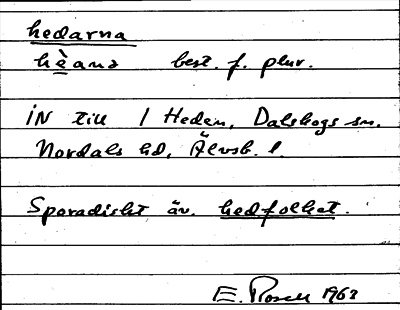 hedarna
hèana best. f. plur.
iN till 1 Heden, Dalskogs sn.
Nordals hd, Älvsb. l.
Sporadiskt äv. hedfolket.
E. Rosell 1963